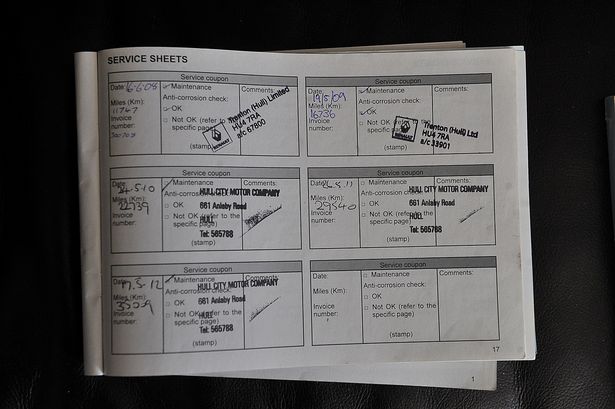 SERVICE SHEETS
Service coupon
Date: 16-6-08
✓ Maintenance
Comments:
Miles (Km):
11747
Anti-corrosion check:
✓ OK
Invoice
number:
□ Not OK (refer to the
specific page)
(stamp)
RENAULT
Trenton (Hull) Limited
HU4 7RA
a/c 67800
Service coupon
Date:
19/5/09
✓ Maintenance
Comments:
Miles (Km):
16736
Anti-corrosion check:
✓ OK
Invoice
number:
□ Not OK (refer to the
specific page)
(stamp)
RENAULT
Trenton (Hull) Ltd
HU4 7RA
a/c 33901
Service coupon
Date:
24.5.10
Maintenance
Comments:
Miles (Km):
22939
Anti-corrosion check:
□ OK
Invoice
number:
□ Not OK (refer to the
specific page)
(stamp)
HULL CITY MOTOR COMPANY
661 Anlaby Road
HULL
Tel: 565788
Service coupon
Date:
Maintenance
Comments:
Miles (Km):
29540
Anti-corrosion check:
□ OK
Invoice
number:
□ Not OK (refer to the
specific page)
(stamp)
HULL CITY MOTOR COMPANY
661 Anlaby Road
HULL
Tel: 565788
Service coupon
Date:
Maintenance
Comments:
Miles (Km):
Anti-corrosion check:
□ OK
Invoice
number:
□ Not OK (refer to the
specific page)
(stamp)
HULL CITY MOTOR COMPANY
661 Anlaby Road
HULL
Tel: 565788
Service coupon
Date:
□ Maintenance
Comments:
Miles (Km):
Anti-corrosion check:
□ OK
Invoice
number:
□ Not OK (refer to the
specific page)
(stamp)
17
1